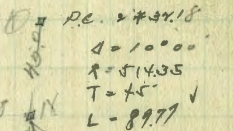 P.C. 2 # 3218
Δ = 10° 00'
R = 514.35
T = 45'
L = 89.77 ✓